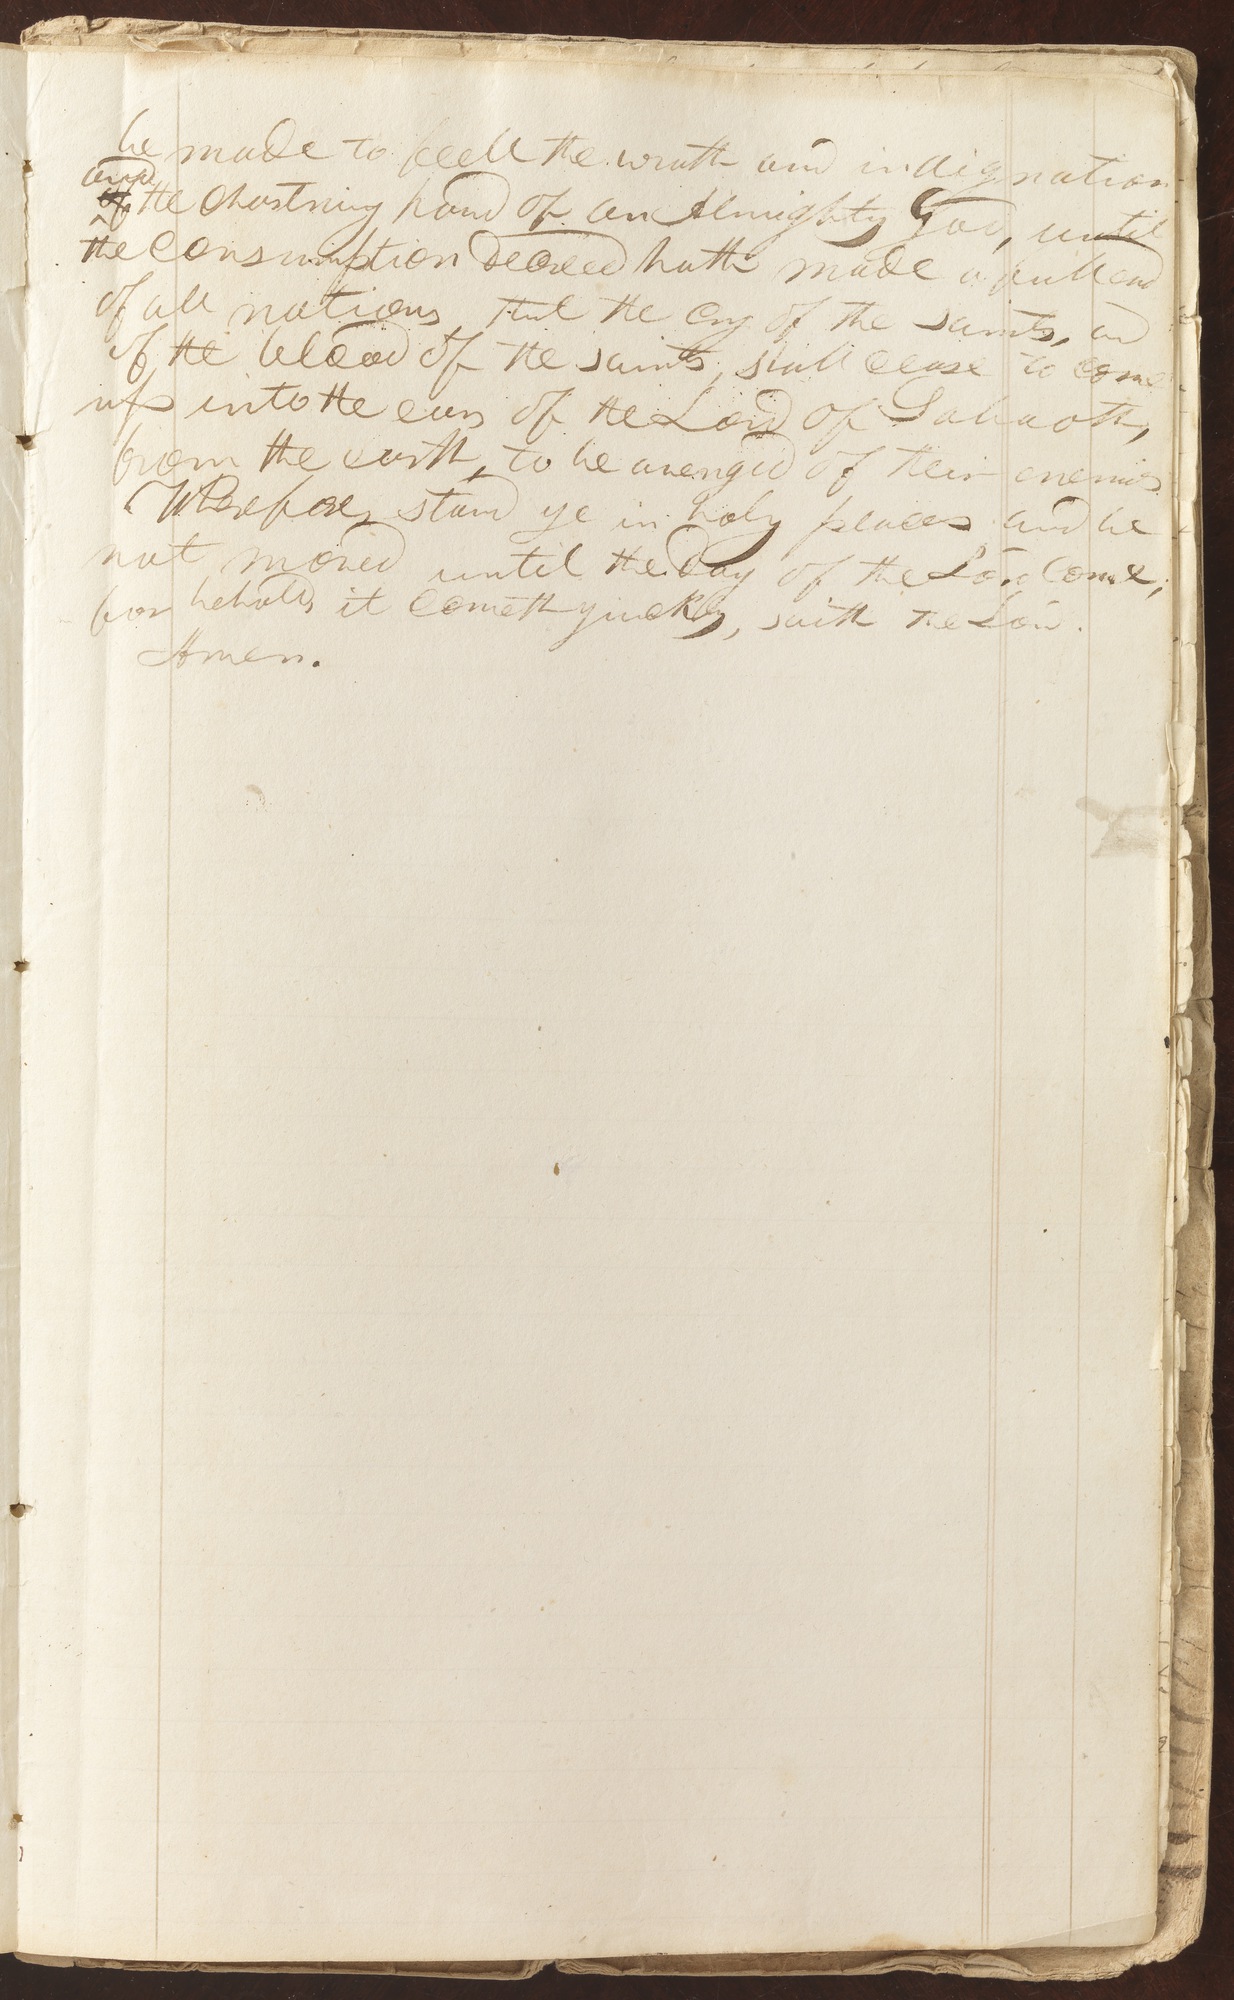 be made to feell the wrath and indignation
and
of the chastning hand of an Almighty God, until
the consumption decreed hath made a full end
of all nations, that the cry of the saints, and
of the blood of the saints, shall cease to come
up into the ears of the Lord of Sabaoth,
from the earth, to be avenged of their enemies
Wherefore, stand ye in holy places and be
not moved until the day of the Lord come;
for behold, it cometh quickly, saith the Lord.
Amen.